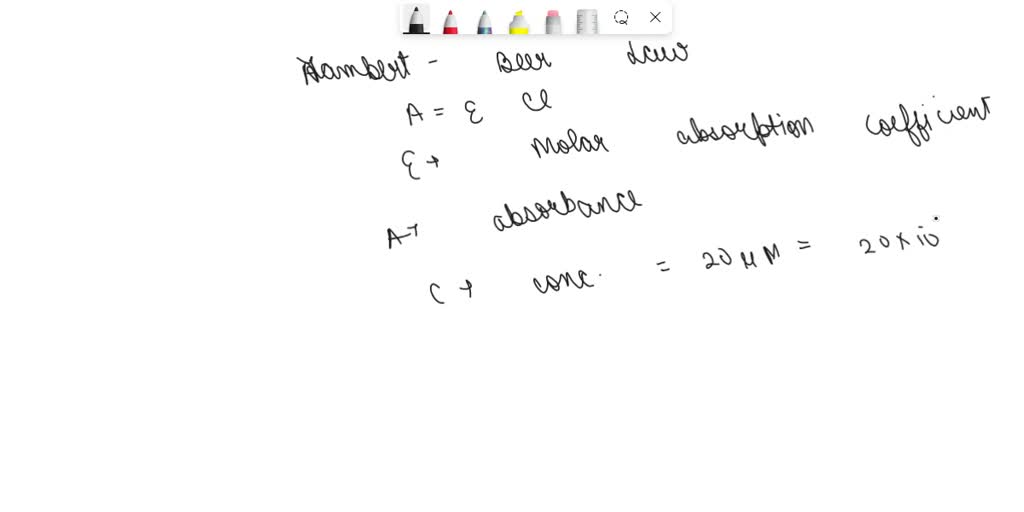 Lambert - Beer Law
A = ε Cl
ε → Molar absorption coefficient
A → absorbance
C → conc. = 20 μM = 20 × 10